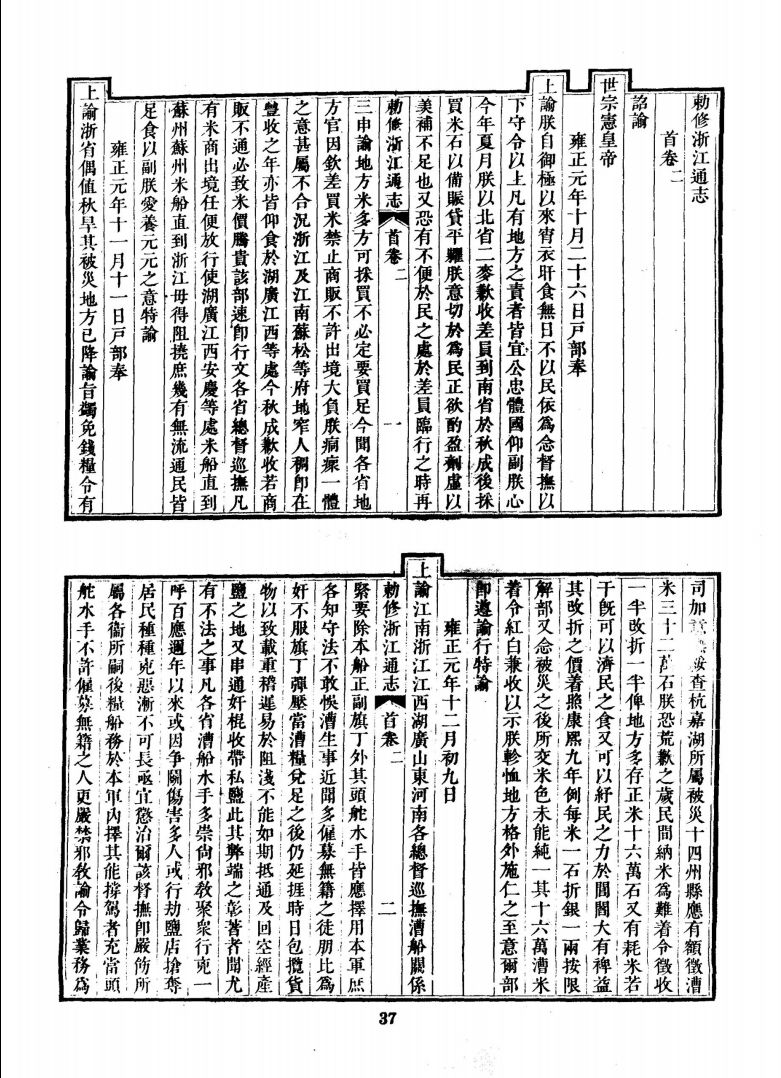 勅修浙江通志
首卷二
詔諭
世宗憲皇帝
雍正元年十月二十六日戸部奉
上諭朕自御極以來宵衣旰食無日不以民依爲念督撫以
下守令以上凡有地方之責者皆宜公忠體國仰副朕心
今年夏月朕以北省二麥歉收差員到南省於秋成後採
買米石以備賑貸平糶朕意切於爲民正欲酌盈劑虛以
美補不足也又恐有不便於民之處於差員臨行之時再
勅修浙江通志 首卷二 一
三申諭地方米多方可採買不必定要買足今聞各省地
方官因欽差買米禁止商販不許出境大負朕痌瘝一體
之意甚屬不合況浙江及江南蘇松等府地窄人稠卽在
豐收之年亦皆仰食於湖廣江西等處今秋成歉收若商
販不通必致米價騰貴該部速卽行文各省總督巡撫凡
有米商出境任便放行使湖廣江西安慶等處米船直到
蘇州蘇州米船直到浙江毋得阻撓庶幾有無流通民皆
足食以副朕愛養元元之意特諭
雍正元年十一月十一日戸部奉
上諭浙省偶值秋旱其被災地方已降諭旨蠲免錢糧今有
司加意 按查杭嘉湖所屬被災十四州縣應有額徵漕
米三十二萬石朕恐荒歉之歲民間納米爲難着令徵收
一半改折一半俾地方多存正米十六萬石又有耗米若
干旣可以濟民之食又可以紓民之力於閭閻大有裨益
其改折之價着照康熙九年例每米一石折銀一兩按限
解部又念被災之後所變米色未能純一其十六萬漕米
着令紅白兼收以示朕軫恤地方格外施仁之至意爾部
卽遵諭行特諭
雍正元年十二月初九日
上諭江南浙江江西湖廣山東河南各總督巡撫漕船關係
勅修浙江通志 首卷二 二
緊要除本船正副旗丁外其頭舵水手皆應擇用本軍庶
各知守法不敢悞漕生事近聞多僱募無籍之徒朋比爲
奸不服旗丁彈壓當漕糧兌足之後仍延捱時日包攬貨
物以致載重稽遲易於阻淺不能如期抵通及回空經產
鹽之地又串通奸棍收帶私鹽此其弊端之彰著者聞尤
有不法之事凡各省漕船水手多崇尙邪教聚衆行兇一
呼百應邇年以來或因爭鬭傷害多人或行劫鹽店搶奪
居民種種兇惡漸不可長亟宜懲治爾該督撫卽嚴飭所
屬各衞所嗣後糧船務於本軍內擇其能撐駕者充當頭
舵水手不許僱募無籍之人更嚴禁邪敎諭令歸業務爲
37